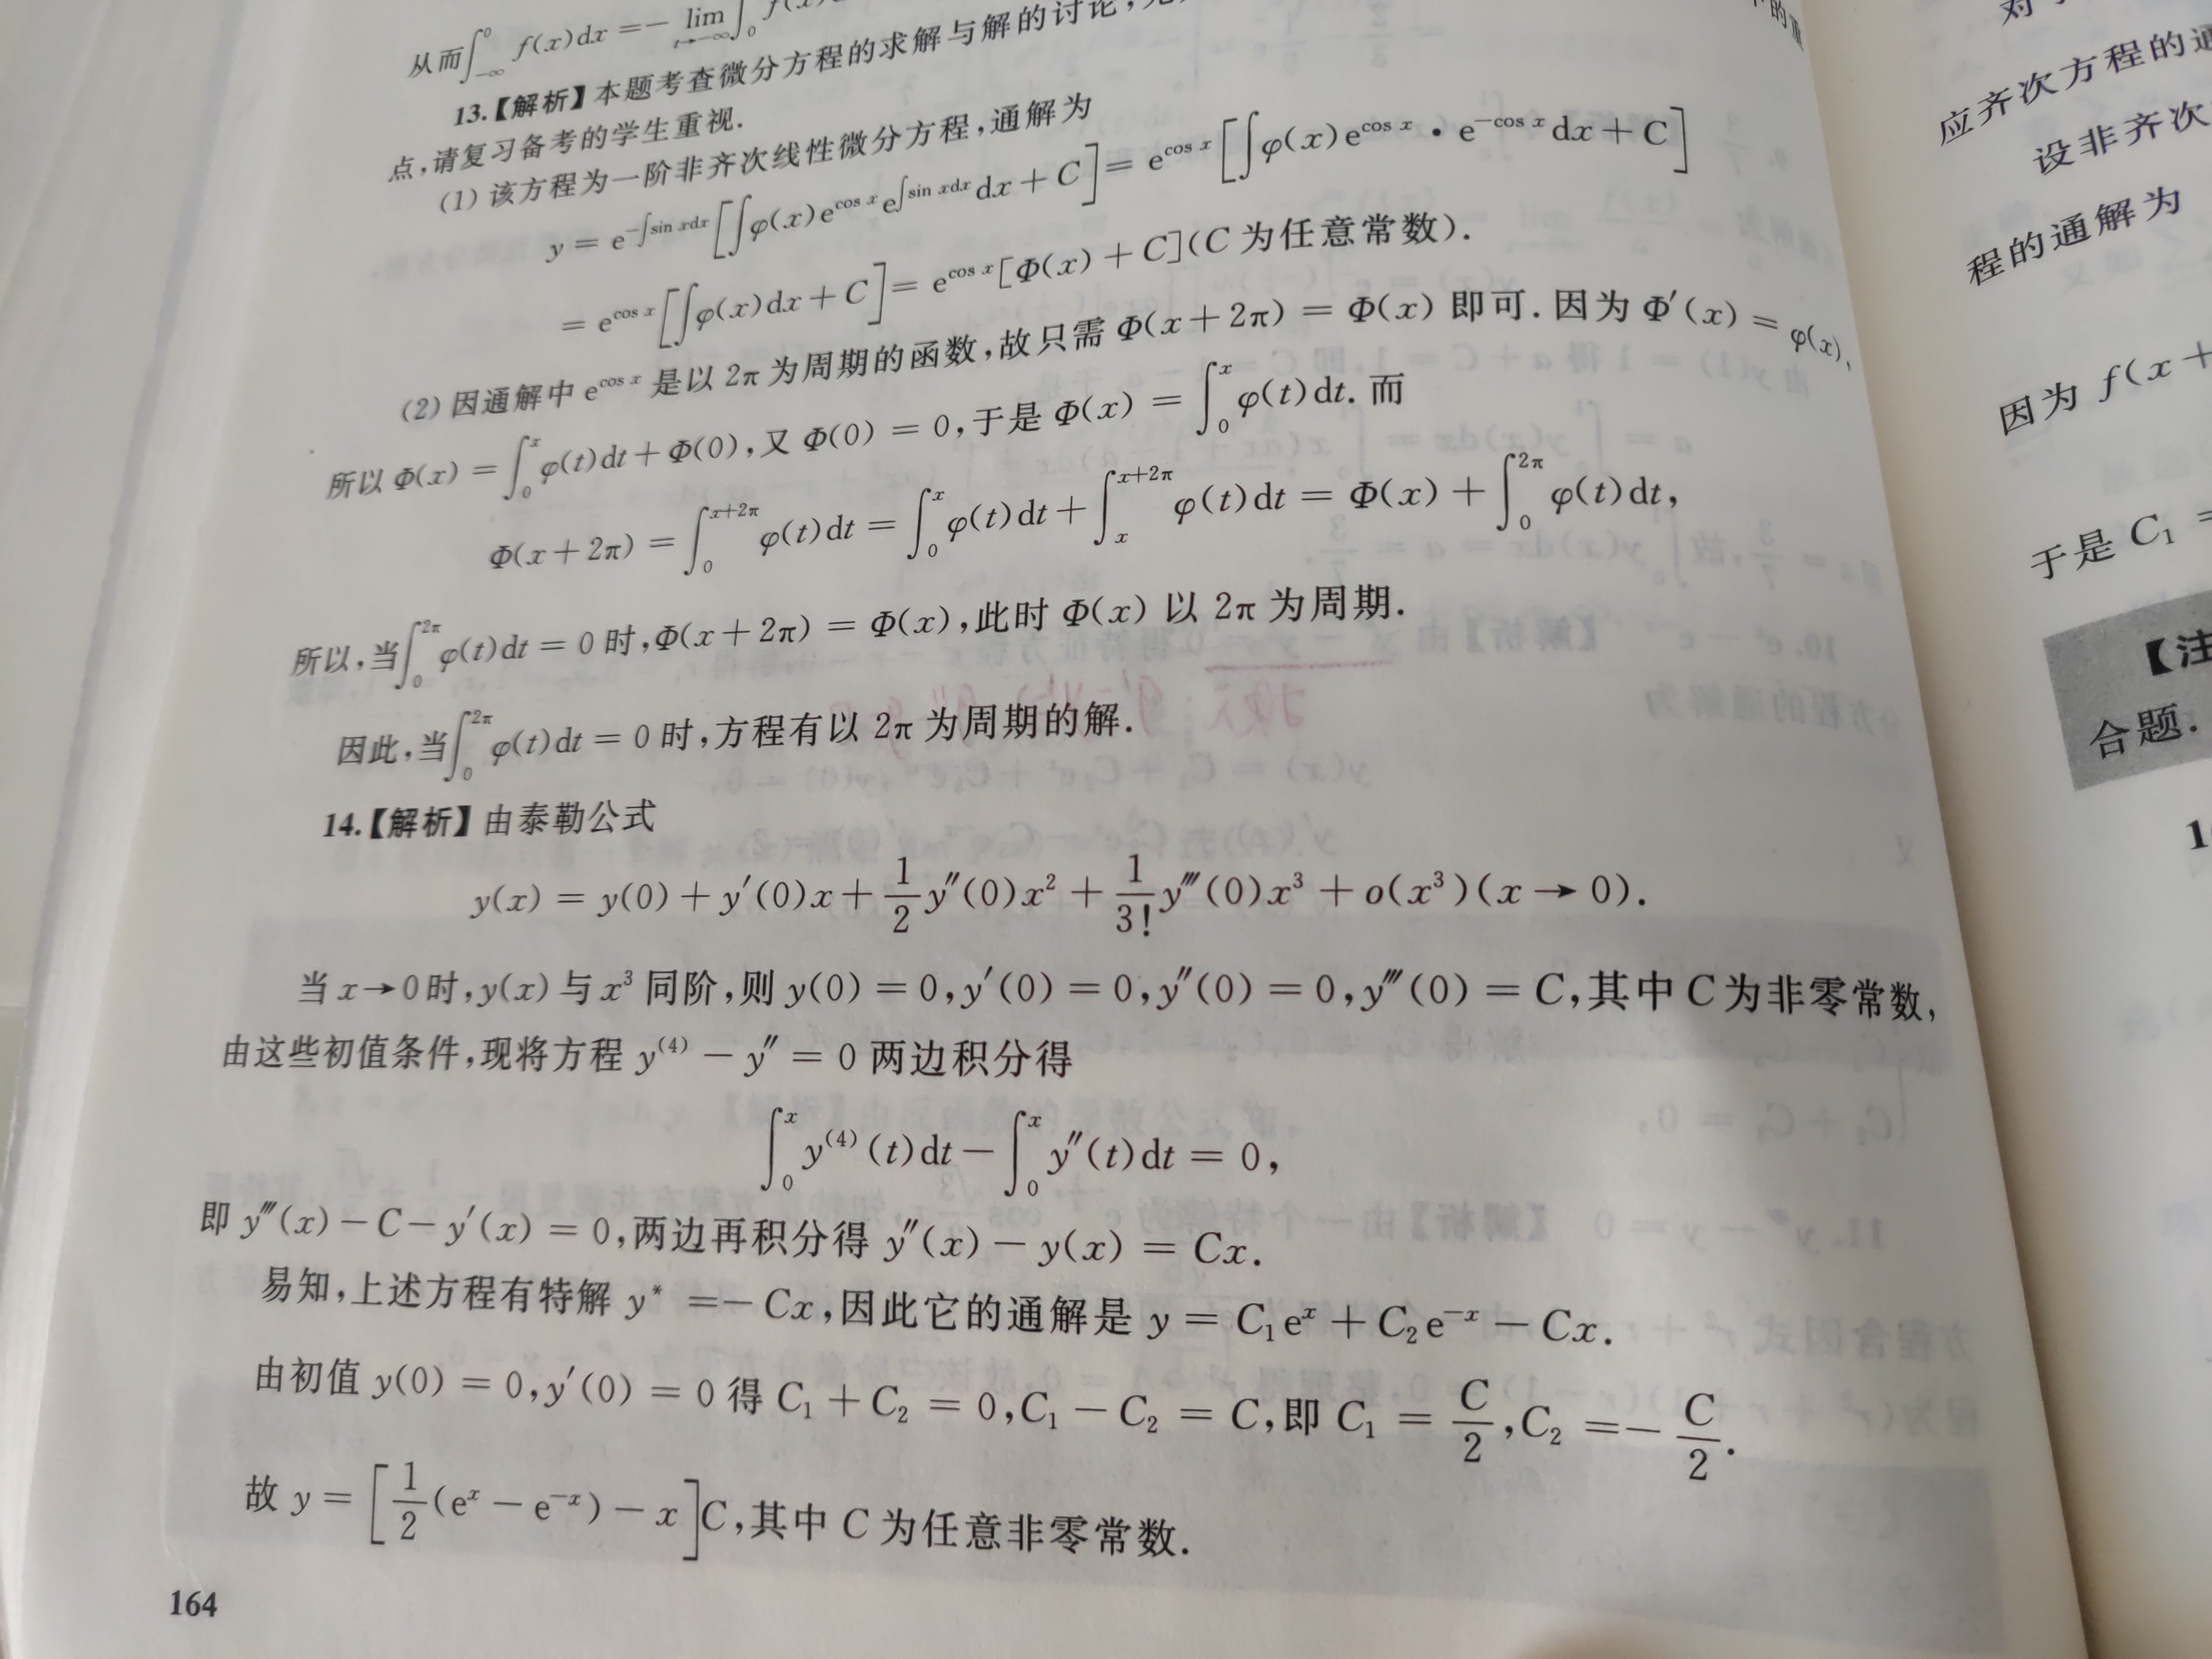 从而∫_{-∞}^{0} f(x)dx = - lim_{t→-∞} ∫_0
13.【解析】本题考查微分方程的求解与解的讨论,
点,请复习备考的学生重视.
(1) 该方程为一阶非齐次线性微分方程,通解为
y = e^{-∫sin xdx}[∫φ(x)e^{cos x}e^{∫sin xdx}dx + C] = e^{cos x}[∫φ(x)e^{cos x} · e^{-cos x}dx + C]
= e^{cos x}[∫φ(x)dx + C] = e^{cos x}[Φ(x) + C](C 为任意常数).
(2) 因通解中 e^{cos x} 是以 2π 为周期的函数,故只需 Φ(x+2π) = Φ(x) 即可. 因为 Φ′(x) = φ(x),
所以 Φ(x) = ∫_0^x φ(t)dt + Φ(0),又 Φ(0) = 0,于是 Φ(x) = ∫_0^x φ(t)dt. 而
Φ(x+2π) = ∫_0^{x+2π} φ(t)dt = ∫_0^x φ(t)dt + ∫_x^{x+2π} φ(t)dt = Φ(x) + ∫_0^{2π} φ(t)dt,
所以,当∫_0^{2π} φ(t)dt = 0 时,Φ(x+2π) = Φ(x),此时 Φ(x) 以 2π 为周期.
因此,当∫_0^{2π} φ(t)dt = 0 时,方程有以 2π 为周期的解.
14.【解析】由泰勒公式
y(x) = y(0) + y′(0)x + \frac{1}{2}y″(0)x² + \frac{1}{3!}y‴(0)x³ + o(x³)(x → 0).
当 x→0时,y(x) 与 x³ 同阶,则 y(0) = 0,y′(0) = 0,y″(0) = 0,y‴(0) = C,其中 C 为非零常数,
由这些初值条件,现将方程 y⁽⁴⁾ − y″ = 0 两边积分得
∫_0^x y⁽⁴⁾(t)dt − ∫_0^x y″(t)dt = 0,
即 y‴(x) − C − y′(x) = 0,两边再积分得 y″(x) − y(x) = Cx.
易知,上述方程有特解 y* = − Cx,因此它的通解是 y = C₁eˣ + C₂e⁻ˣ − Cx.
由初值 y(0) = 0,y′(0) = 0 得 C₁ + C₂ = 0,C₁ − C₂ = C,即 C₁ = \frac{C}{2},C₂ = − \frac{C}{2}.
故 y = [\frac{1}{2}(eˣ − e⁻ˣ) − x]C,其中 C 为任意非零常数.
164
应齐次方程的通
设非齐次
程的通解为
因为 f(x +
于是 C₁ =
【注
合题.